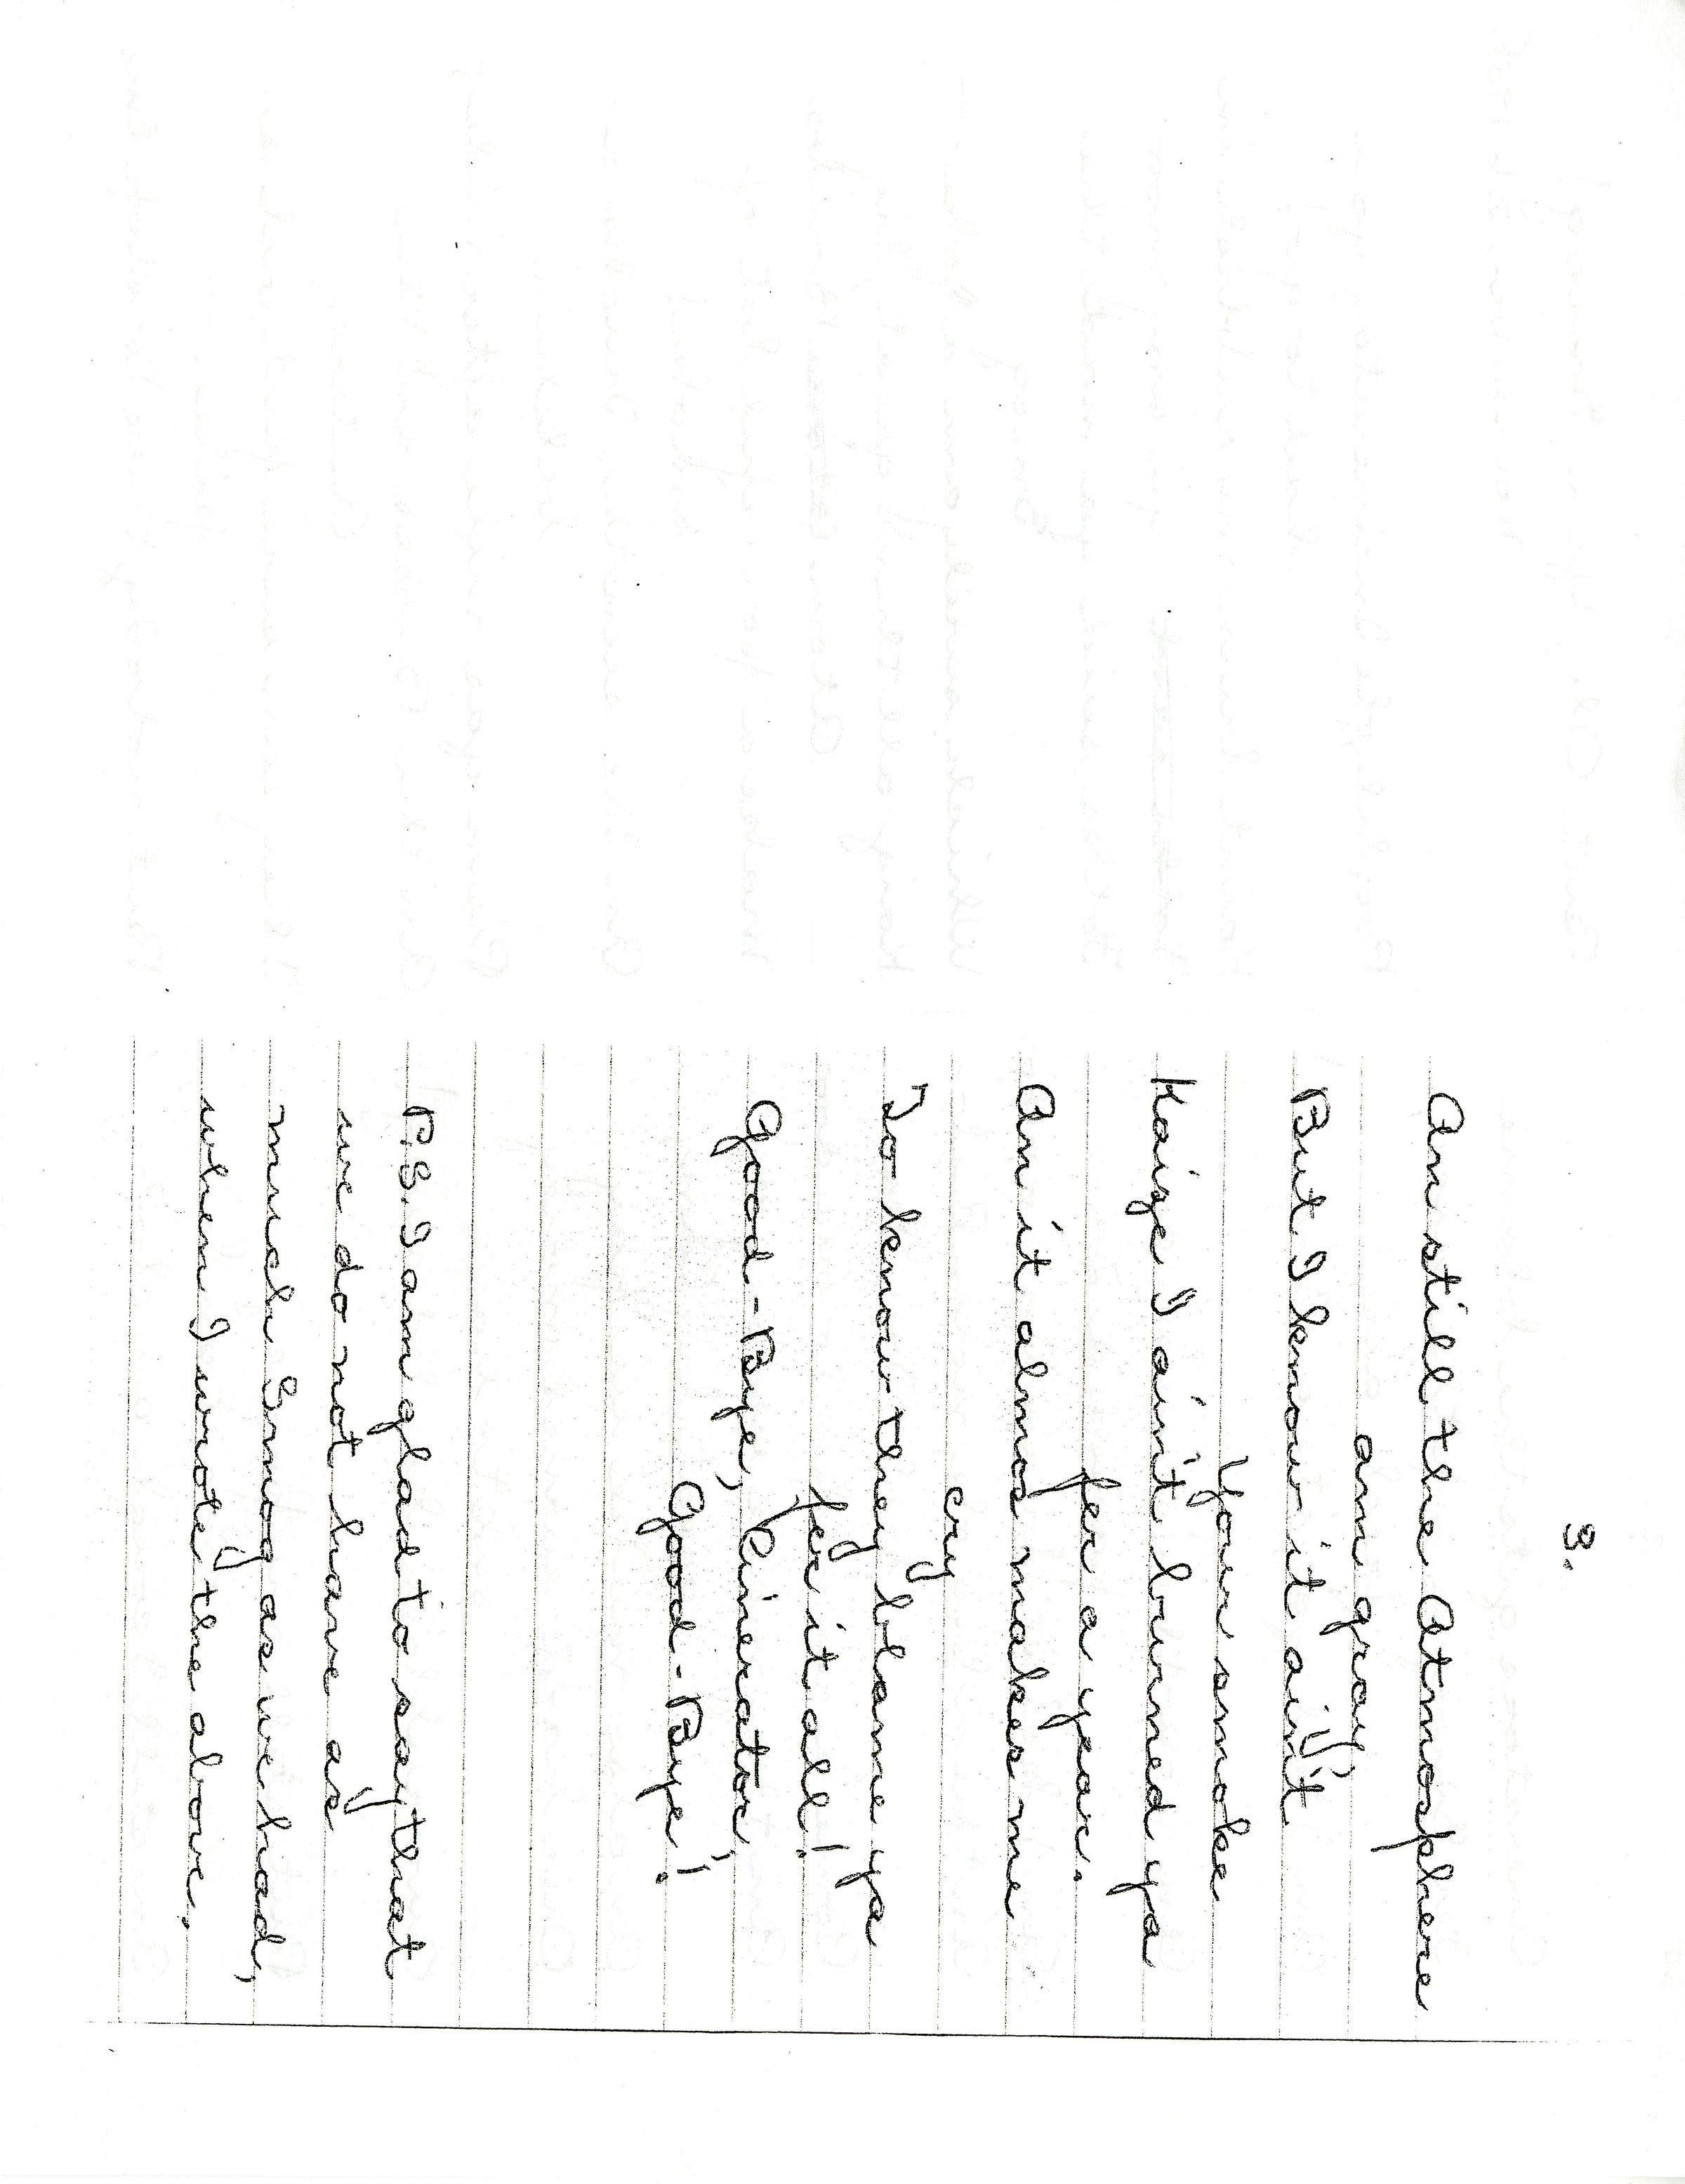 3.
An still the Atmosphere
an gray,
But I know it ain't
your smoke
Kaize I ain't burned ya
fer a year.
An it almos makes me
cry
To know they blame ya
fer it all!
Good-Bye, Cinerator,
Good-Bye!
P.S. I am glad to say that
we do not have as
much Smog as we had,
when I wrote the above.